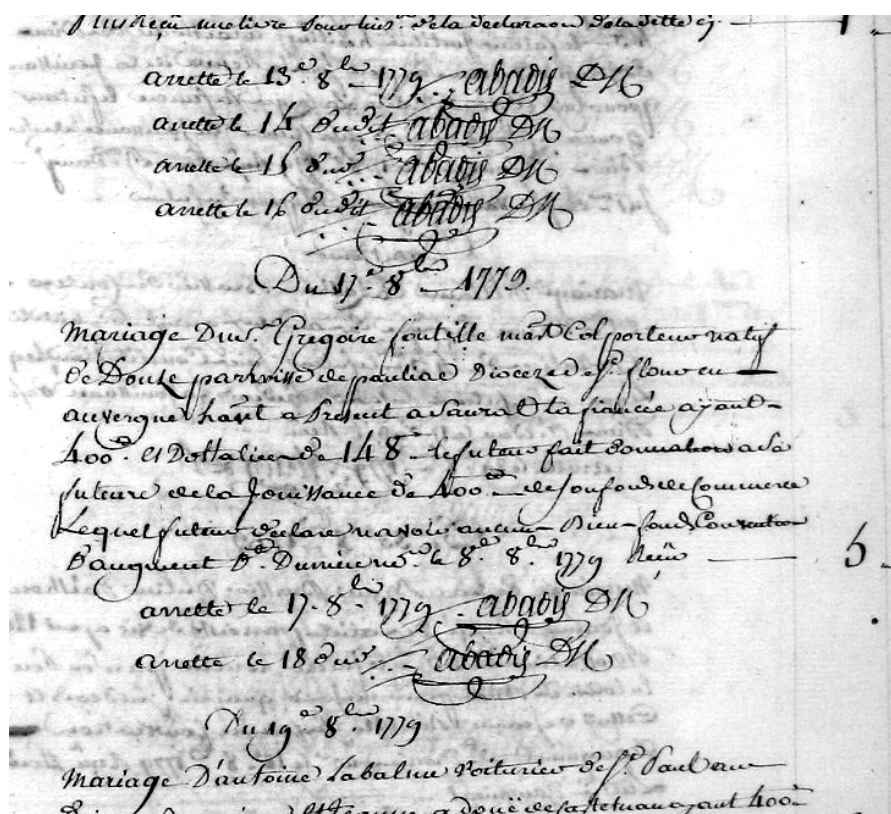 Plus Reçu une livre pour lins.on de la declaraon de la ditte cy — 1
arretté le 13e 8bre 1779 abadie DM
arretté le 14 dudit abadie DM
arretté le 15 duv abadie DM
arretté le 16 dudit abadie DM
Du 17e 8bre 1779.
Mariage Du sr Gregoire fontille mard Colporteur natif
de Douze parroisse de pauliac Dioceze de st flour en
auvergne hant a Present a Saurat la fiancée ayant
400ll et Dottalice de 148ll le futeur fait donnation a la
future de la Jouissance de 400ll de son fonds de Commerce
Lequel futeur declare navoir aucun Bien-fonds Convention
d'augment le 8e 8bre 1779 Reçu — 5
arretté le 17 8bre 1779 abadie DM
arretté le 18 duv abadie DM
Du 19e 8bre 1779
Mariage D'antoine voiturier de st Paul
ayant 400ll